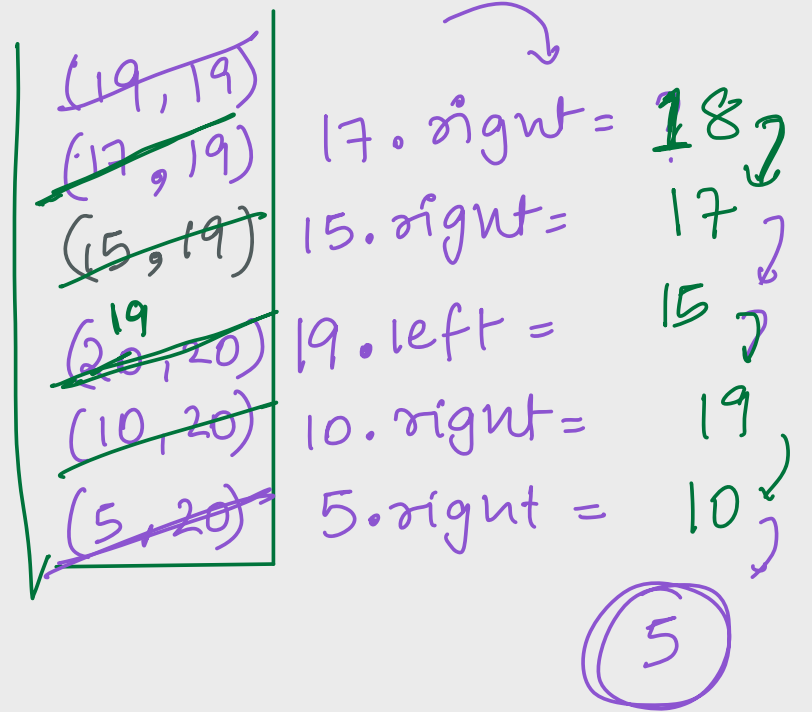 (19, 19)
(17, 19) 17. right = 18
(15, 19) 15. right = 17
19
(20, 20) 19. left = 15
(10, 20) 10. right = 19
(5, 20) 5. right = 10
5